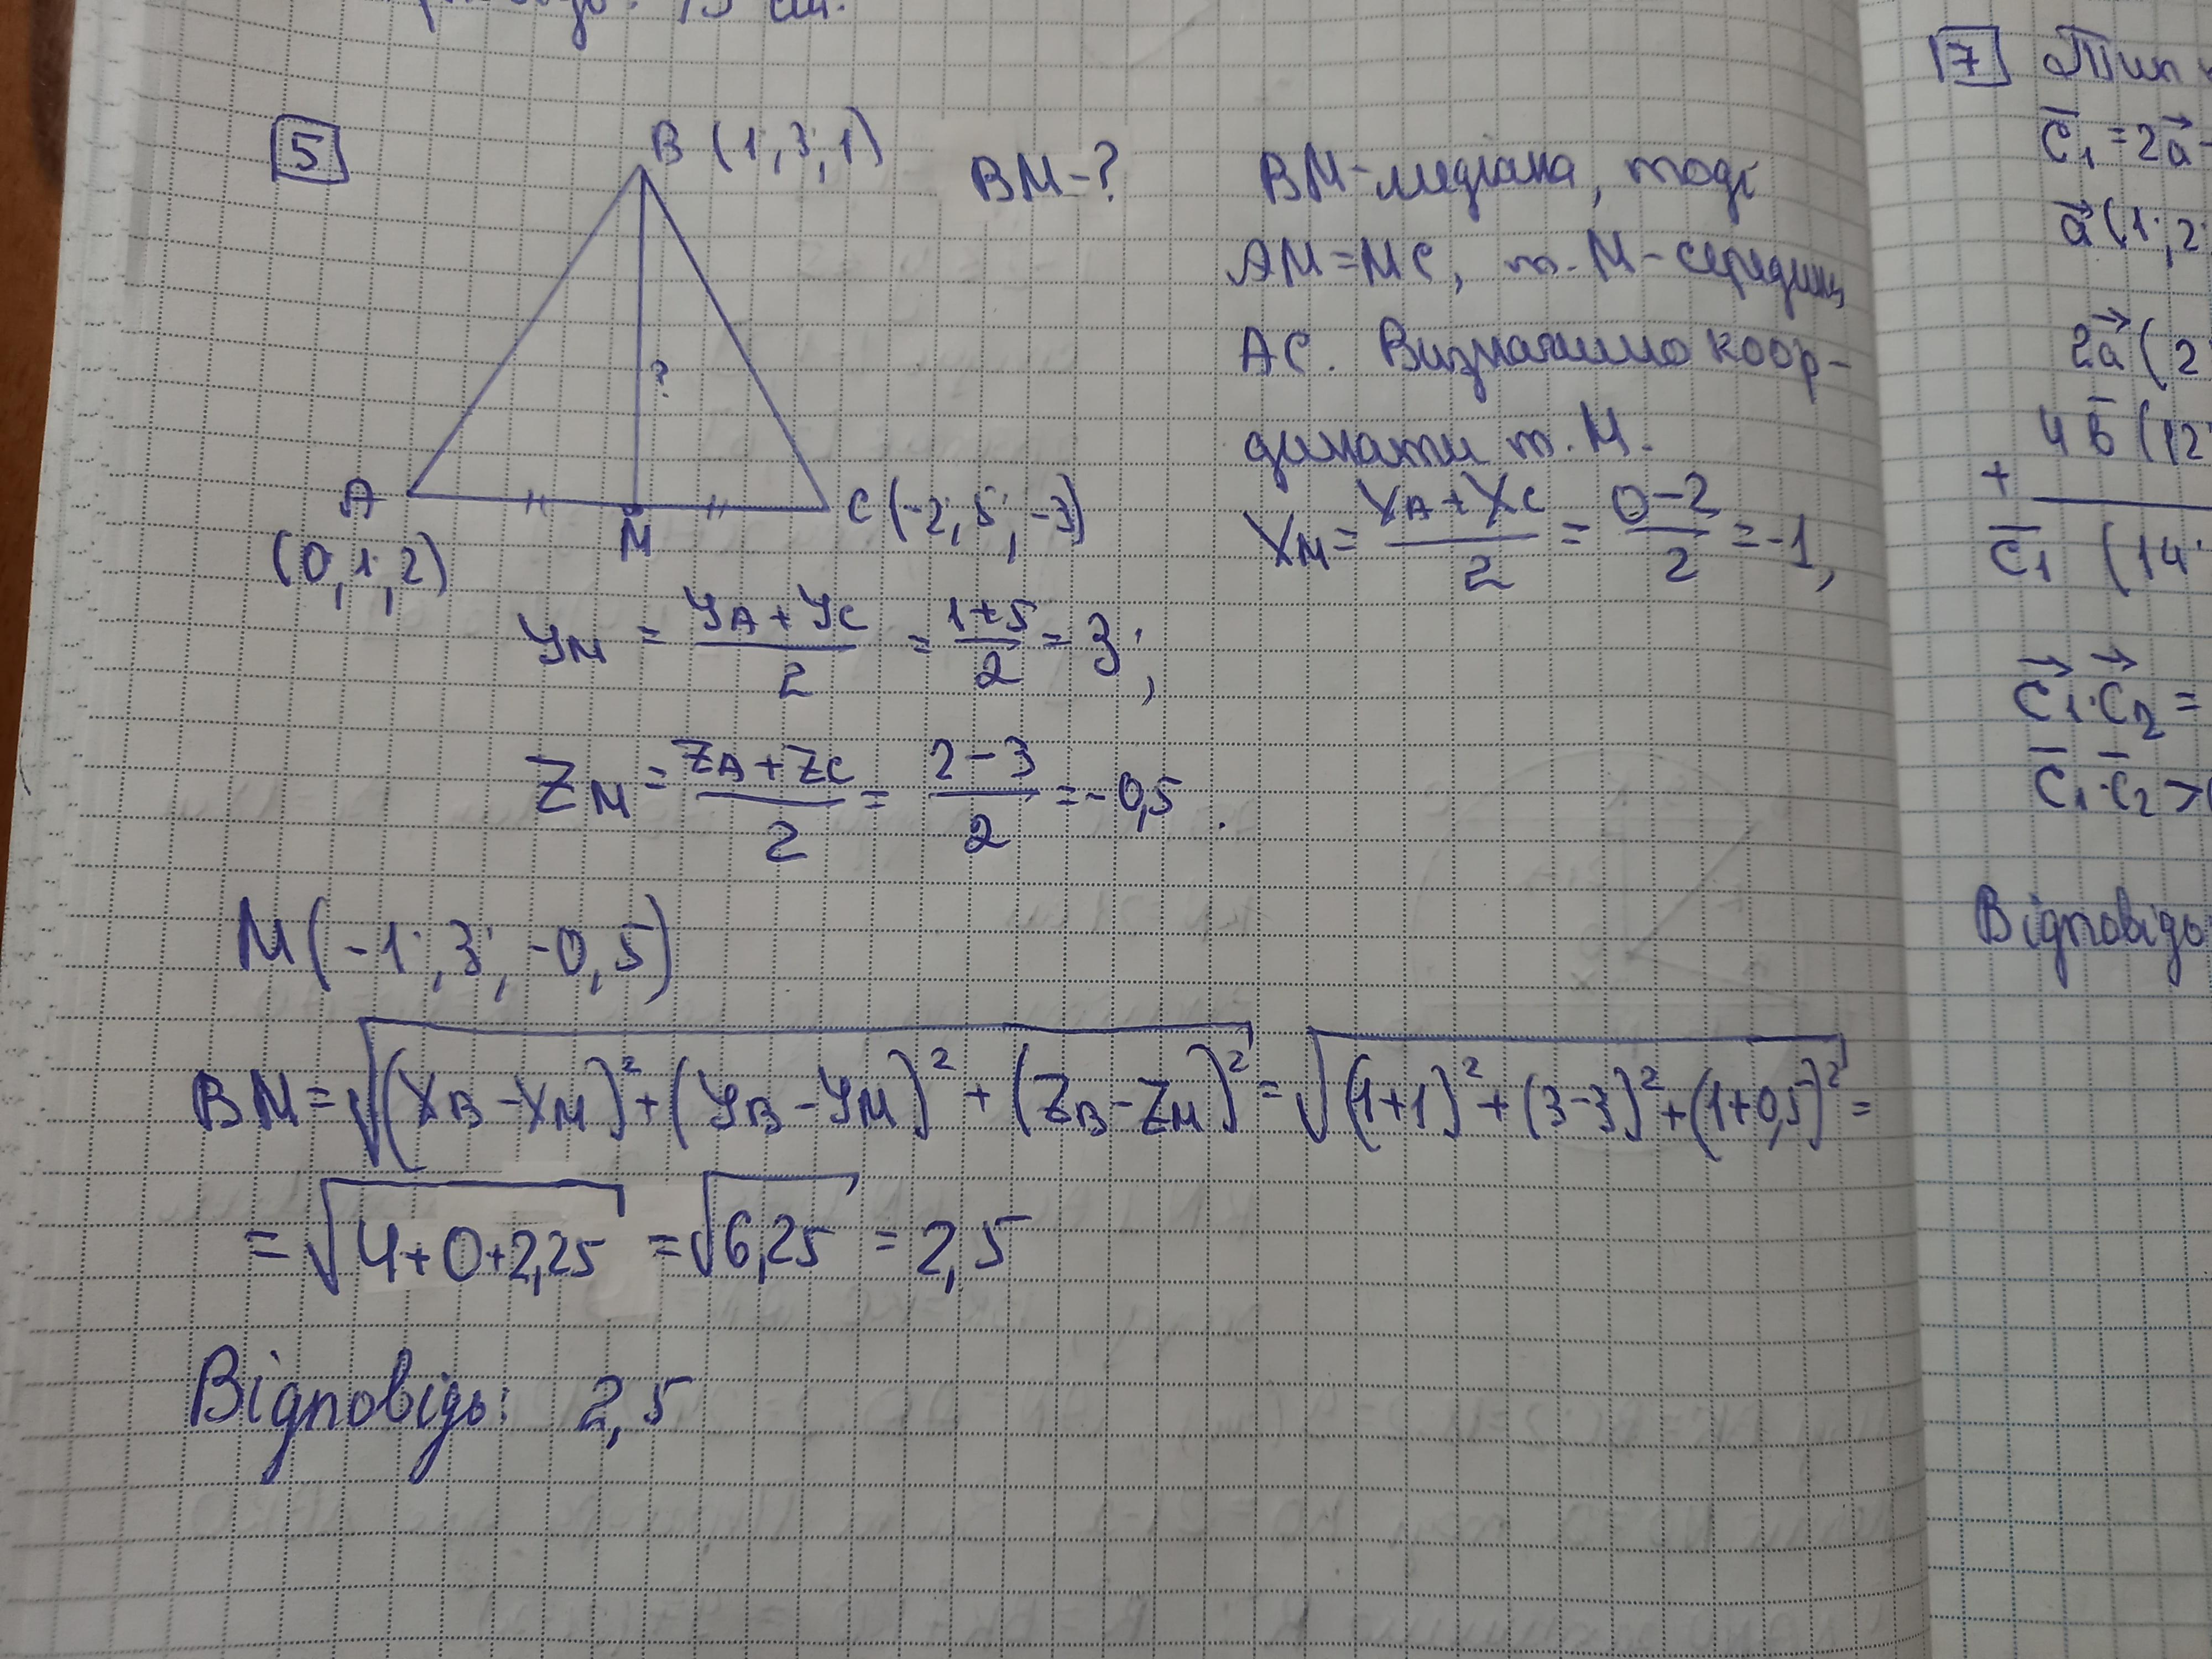 5
B (1; 3; 1)
BM-?
BM-медіана, тоді
AM=MC, т. M-середина
AC. Визначимо коор-
динати т. M.
?
A
M
C (-2; 5; -3)
(0; 1; 2)
XM = (XA + XC)/2 = (0-2)/2 = -1;
YM = (YA + YC)/2 = (1+5)/2 = 3;
ZM = (ZA + ZC)/2 = (2-3)/2 = -0,5.
M(-1; 3; -0,5)
BM = √((XB - XM)² + (YB - YM)² + (ZB - ZM)²) = √((1+1)² + (3-3)² + (1+0,5)²) =
= √(4+0+2,25) = √6,25 = 2,5
Відповідь: 2,5
7 Тип
c̅₁ = 2a⃗
a⃗ (1; 2;
2a⃗ (2
4b̅ (12
+
c̅₁ (14
c⃗₁·c⃗₂ =
c̅₁·c̅₂ >
Відповідь